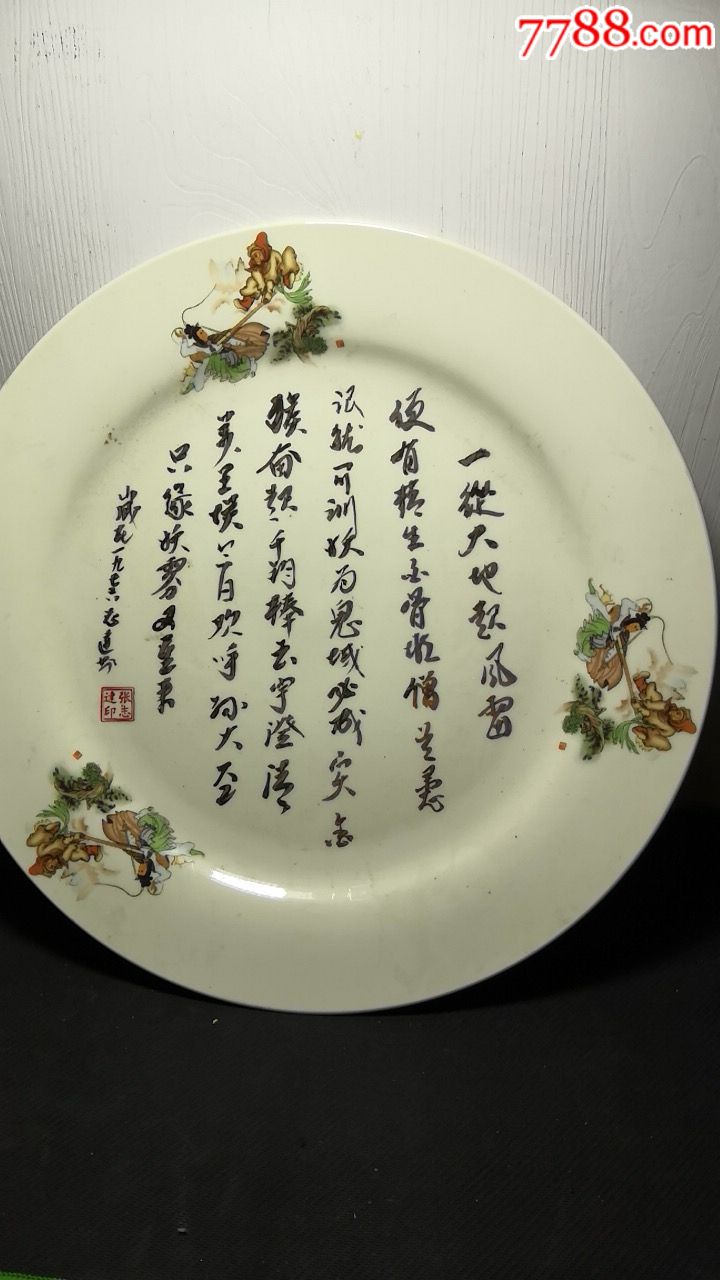 7788.com
一從大地起風雷
便有精生白骨堆僧是愚
氓犹可训妖为鬼域必成灾金
猴奋起千钧棒玉宇澄清
万里埃今日欢呼孙大圣
只缘妖雾又重来
岁在一九七六志達书
张志
達印